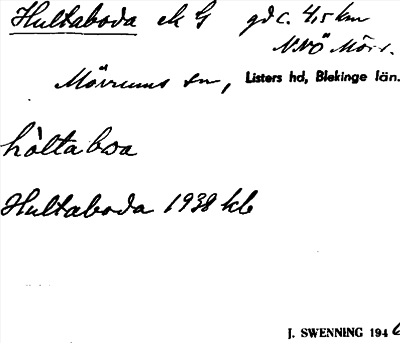 Hultaboda ek G gd c. 4,5 km
NNÖ Mörr.
Mörrums sn, Listers hd, Blekinge län.
hòltaboa
Hultaboda 1938 kb
J. SWENNING 194